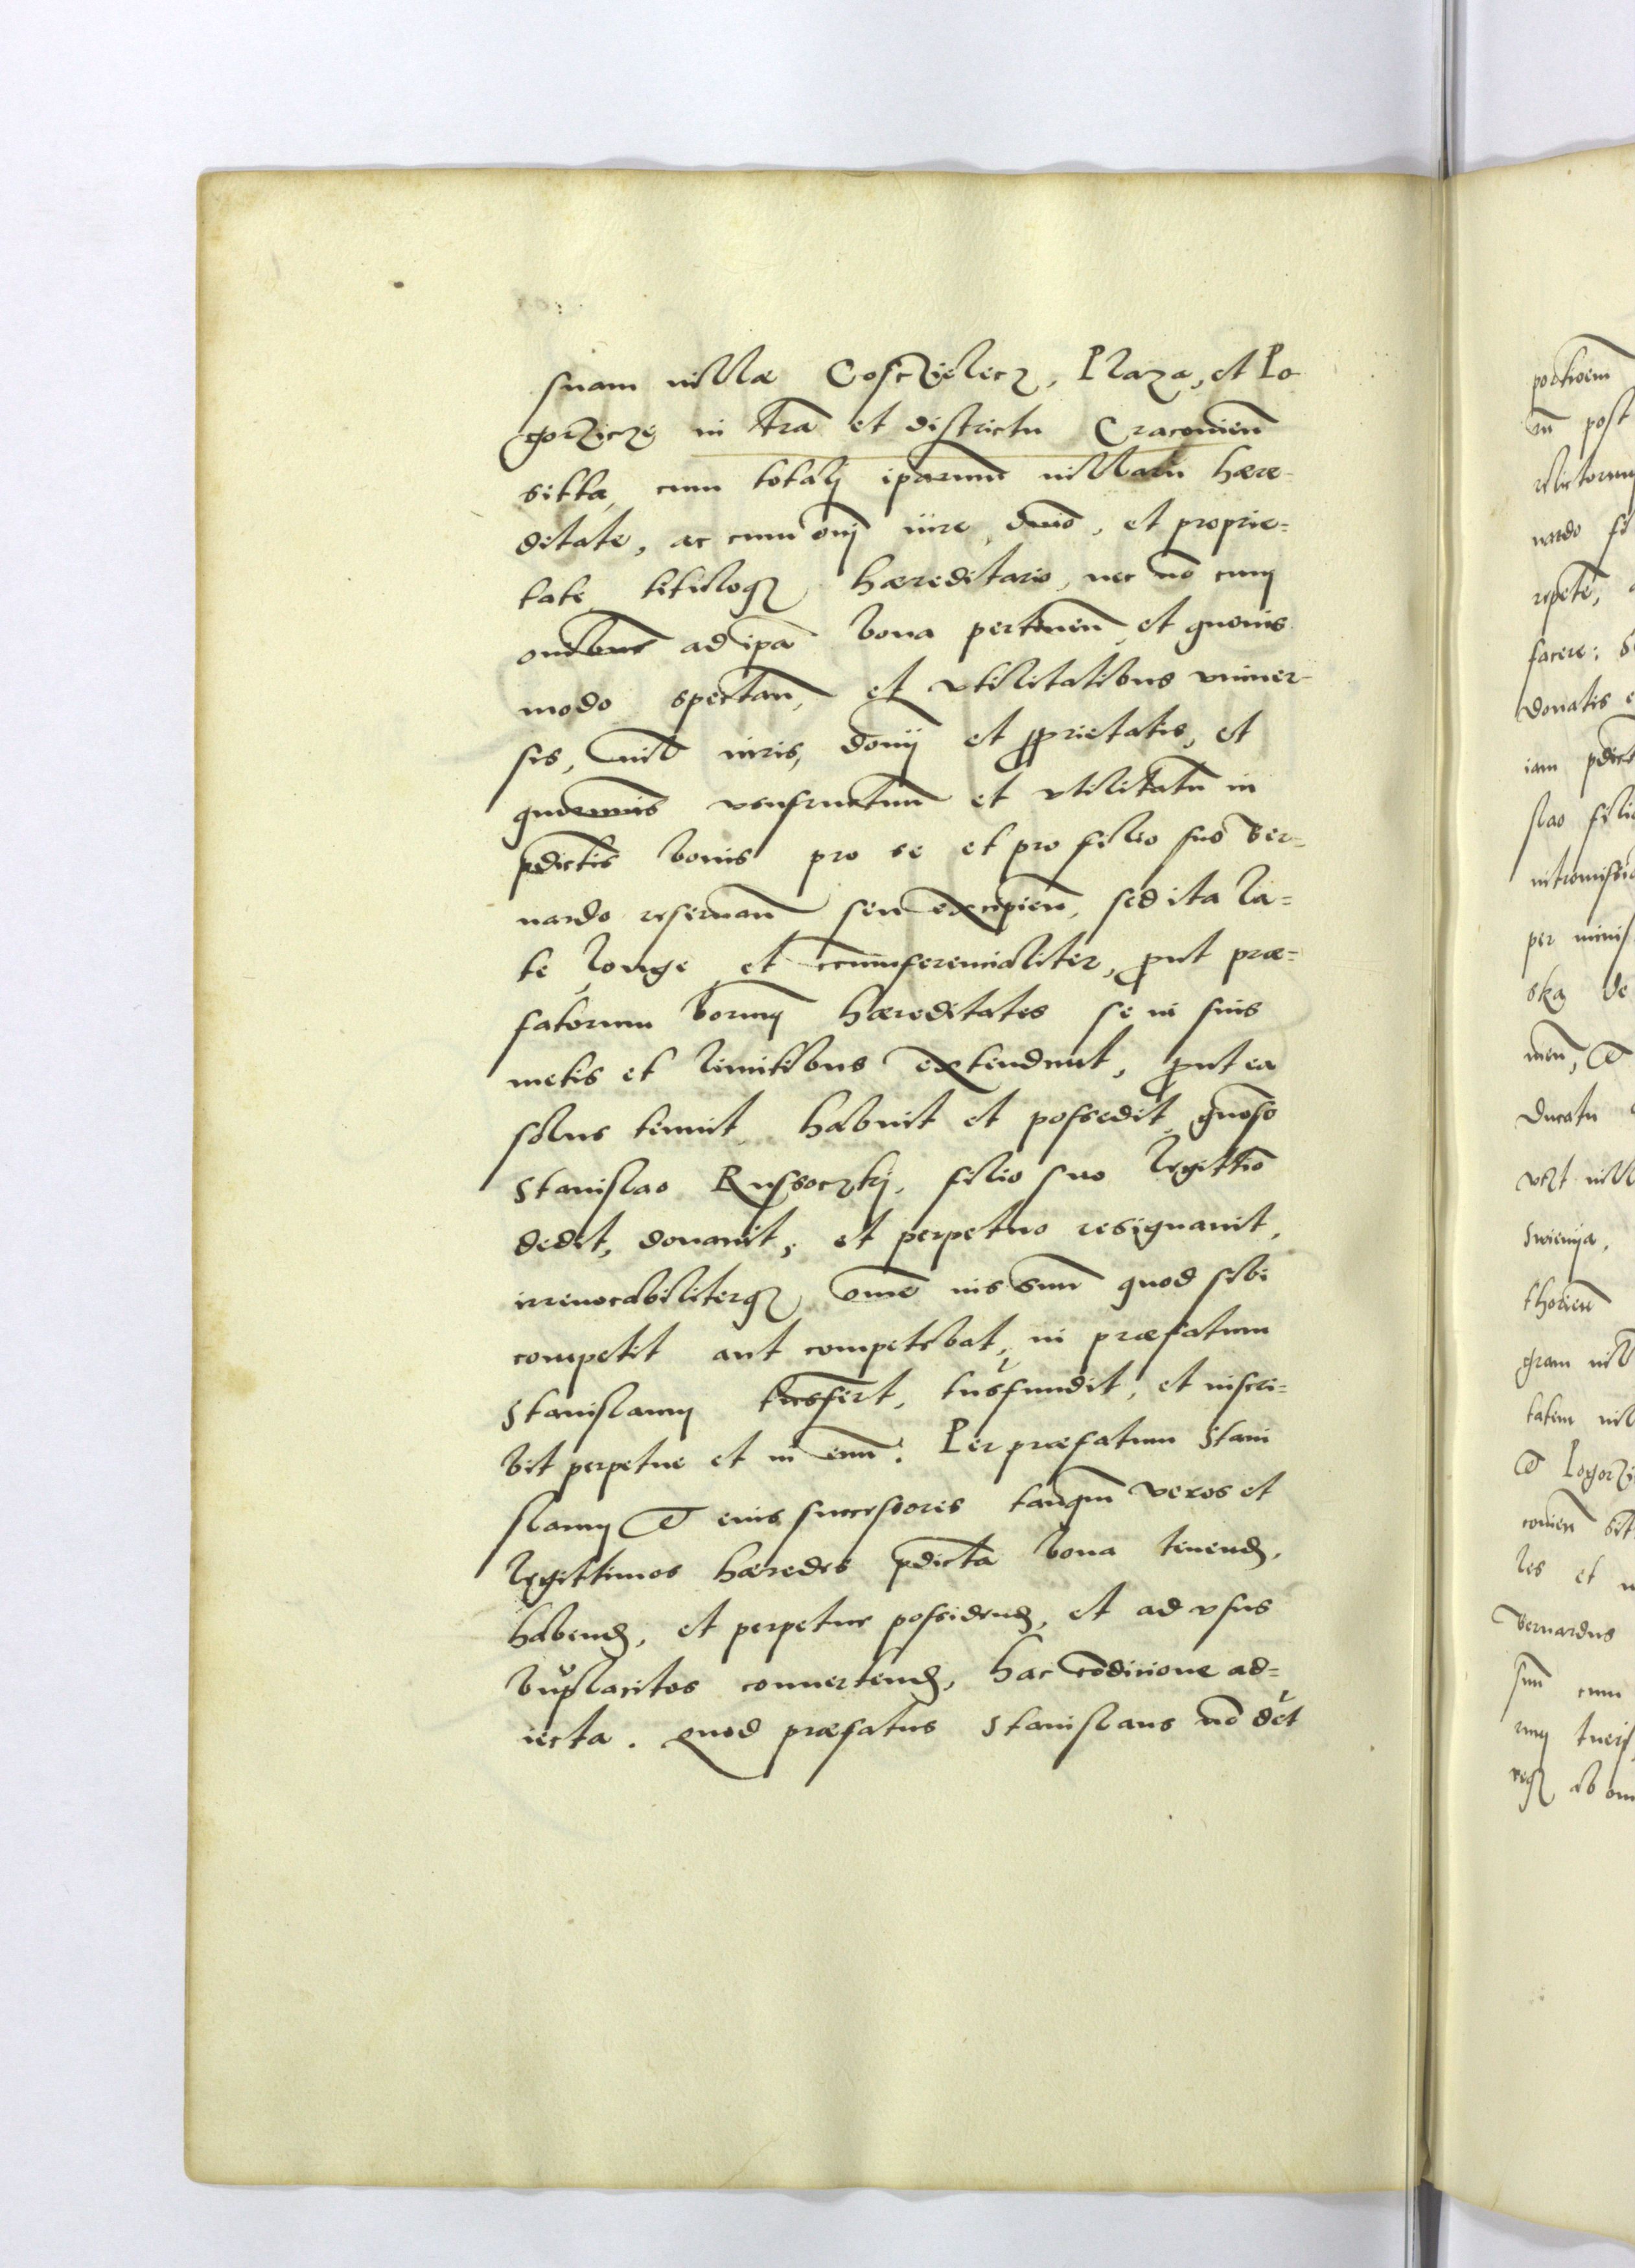 suam villæ Cosczielecz, Plaza, et Po
gorzicze in tra et districtu Cracouien
sitta, cum totalj iparum villaru hære-
ditate, ac cum onj iure, dnio, et proprie=
tate, tituloq hæreditario, nec no cum
onibus ad ipa bona pertinen et quouis
modo spectan, et vtilitatibus vniuer-
sis, nil iuris, donij et pprietatis, et
quorumuis vsufructuu et vtilitatu in
pdictis bonis pro se et pro filio suo Ber-
nardo reseruan seu excipien, sed ita la=
te, longe et circumferencialiter, put præ=
fatorum bonorum hæreditates se in suis
metis et limitibus extendunt, put ea
solus tenuit, habuit et possedit, gnoso
Stanislao Russoczkj, filio suo legittio
dedit, donauit, et perpetuo resignauit,
irreuocabiliterq, ome ius suum quod sibi
competit aut competebat, in præfatum
Stanislaum trasfert, trasfundit, et inscri=
bit perpetue et in euu. Per præfatum Stani
slaum et eius successores tanqm veros et
legittimos hæredes pdicta bona tenend,
habend, et perpetue possidend, et ad vsus
buplacitos conuertend, hac condicione ad=
iecta. Quod præfatus Stanislaus no det
portioem
post
nardo
repete,
facere:
donatis
iam pdict
slao filio
intromissio
per minis
ska de
men, et
Ducatu
vczt
Swienija,
thorien
gram
tatem
et Pogorzi
couien sit
les et
Bernardus
suu cum
ab om